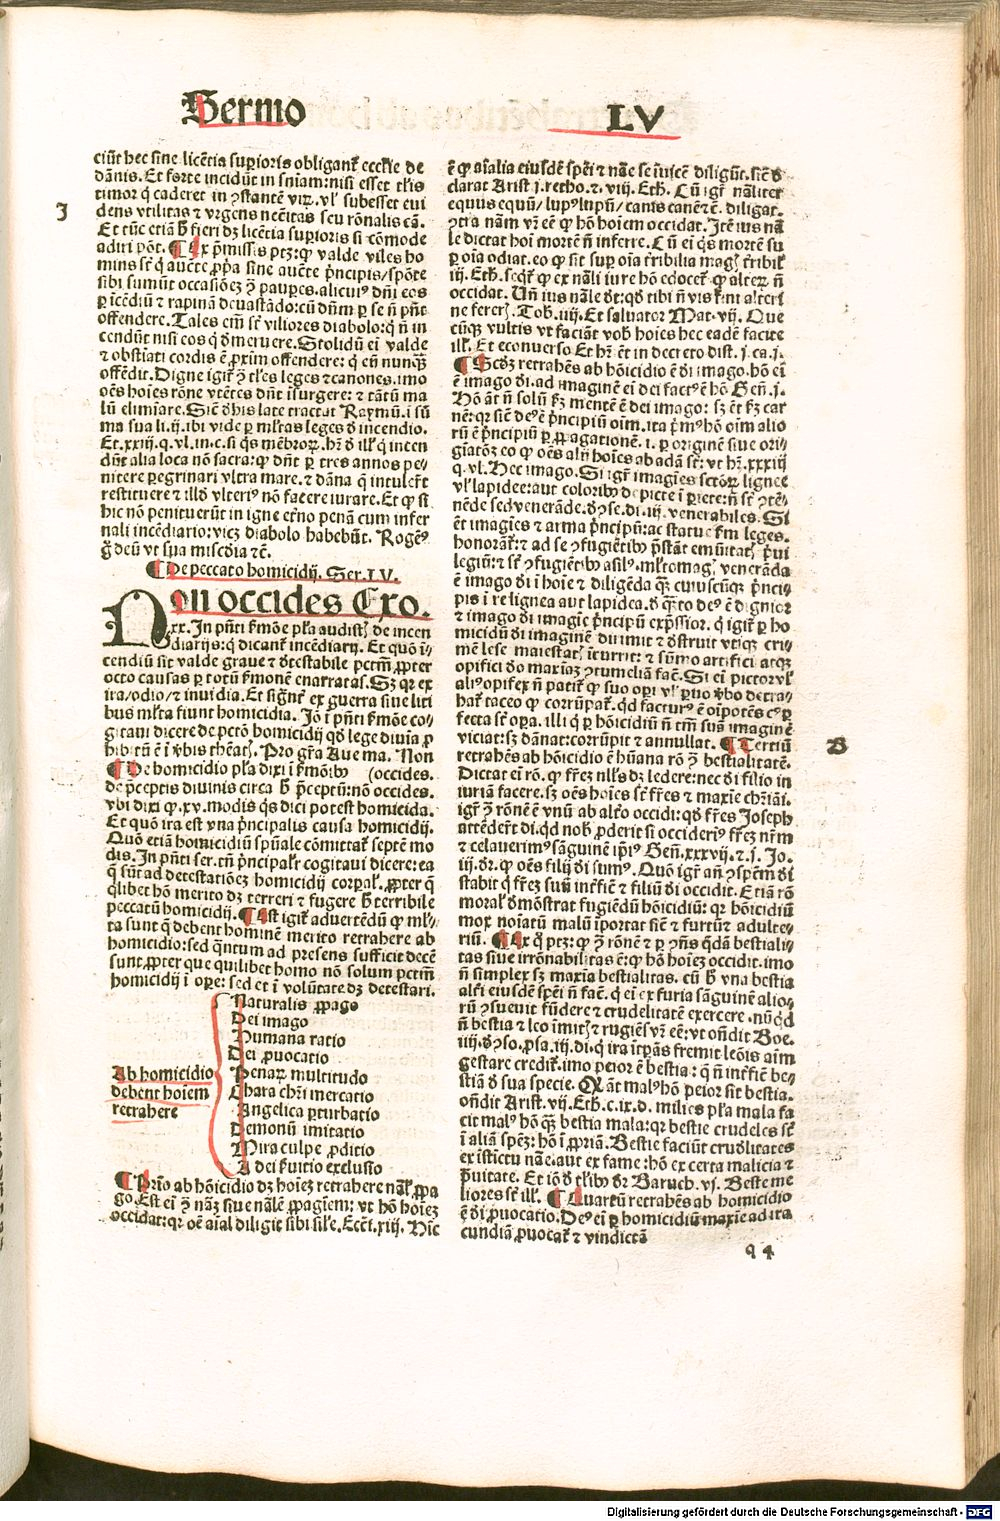 Sermo LV
ciūt hec sine licētia superioris obligant᷑ ecclesie de
dānis. Et forte incidūt in sniam: nisi esset tl̄is
timor q̇ caderet in ꝯstantē viꝝ. vl̓ subesset eui
J
dens vtilitas ⁊ vrgens necc̄itas seu rōnalis cā.
Et tūc etiā h̄ fieri dꝫ licētia superioris si cōmode
adiri pōt. ¶ Ex p̄missis ptꝫ: ꝙ valde viles ho
mines sūt q̇ aucte ꝓp̄a sine aucte p̄ncipis/ spōte
sibi sumūt occasiōeꝫ ꝫ paupes. alicuiꝰ dn̄i eos
ꝑ icēdiū ⁊ rapinā deuastādo: cū dn̄m ꝑ se n̄ pn̄t
offendere. Tales em̄ sūt viliores diabolo: q̇ n̄ in
cendūt nisi eos q̇ dmeruere. Stolidū ei valde
⁊ obstiati cordis ē ꝓxim̄ offendere: q̇ eū nunꝗ̄
offēdit. Digne igit᷑ ꝫ tl̄es leges ⁊ canones. imo
oēs hoīes rōne vtētes dn̄t isurgere: ⁊ tātū ma
lū elimiare. Sic̄ d̄ his late tractat Raymū. i sū
ma sua li. ij. ibi vide ꝑ ml̄tas leges d̄ incendio.
Et. xxiij. q. vl. in. c. si q̇s mēbroꝝ. hr̄ d̄ ill̄ q̇ incen
dūt alia loca nō sacra: ꝙ dn̄t ꝑ tres annos pe-
nitere pegrinari vltra mare. ⁊ dāna q̇ intulert̄
restituere ⁊ illd̓ vlteriꝰ nō facere iurare. Et ꝙ si
hic nō penituerūt in igne etr̄no penā cum infer
nali incēdiario: vicꝫ diabolo habebūt. Rogēꝰ
ḡ deū vt sua miscd̄ia ⁊c̄.
¶ De peccato homicidij. Ser. LV.
Non occides Exo.
xx. In pn̄ti ẜmōe pl̄a audistꝭ de incen
diarijs: q̇ dicant᷑ incēdiarij. Et quō i-
cendiū sit valde graue ⁊ dt̄estabile pctm̄. ꝓpter
octo causas ꝑ totū ẜmonē enarratas. Sꝫ qꝛ ex
ira/odio/⁊ inuidia. Et signt̄ ex guerra siue liti
bus ml̄ta fiunt homicidia. Jō i pn̄ti ẜmōe co-
gitaui dicere de pctō homicidij qd̓ lege diuia ꝓ
hibitū ē i v̓bis theatꝭ. Pro gr̄a Aue ma. Non
¶ De homicidio pl̄a dixi i ẜmōibꝰ (occides.
de p̄ceptis diuinis circa h̄ p̄ceptū: nō occides.
vbi dixi ꝙ. xv. modis q̇s dici potest homicida.
Et quō ira est vna p̄ncipalis causa homicidij.
Quō etiā homicidiū spūale cōmittat᷑ septē mo
dis. In pn̄ti ser. tn̄ p̄ncipalr̄ cogitaui dicere: ea
q̄ sūt ad detestatiōeꝫ homicidij corpal̓. ꝓpter q̄
q̇libet hō merito dꝫ terreri ⁊ fugere h̄ terribile
peccatū homicidij. ¶ Est igit᷑ aduertēdū ꝙ ml̓-
ta sunt q̄ debent hominē merito retrahere ab
homicidio: sed q̄ntum ad presens sufficit decē
sunt. ꝓpter que quilibet homo nō solum pctm̄
homicidij i ope: sed et i volūtate dꝫ detestari.
Naturalis ꝓpago
Dei imago
Humana ratio
Dei ꝓuocatio
Ab homicidio
debent hoiem
retrahere
Penaꝝ multitudo
Chara chr̄i mercatio
Angelica pturbatio
Demonū imitatio
Mira culpe ꝓditio
A dei ẜuitio exclusio
¶ Prīo ab hōicidio dꝫ hoīeꝫ retrahere nāl̓ ꝓpa
go. Est ei ꝫ nāꝫ siue nālē ꝓpagiem: vt hō hoīeꝫ
occidat: qꝛ oē aīal diligit sibi sil̄e. Ecc̄i. xiij. Hic
ē ꝙ aīalia eiusdē spēi ⁊ nāe se īuicē diligūt. sic̄ d̄
clarat Arist. j. retho. ⁊. viij. Eth. Cū igr̄ nālit̄er
equus equū/ lupꝰlupū/ canis canē ⁊c̄. diligat.
ꝯtra nām vr̄ eē ꝙ hō hoiem occidat. Itē ius nā
le dictat hoī mortē n̄ inferre. Cū ei q̇s mortē su
ꝑ oīa odiat. eo ꝙ sit suꝑ oīa t̄ribilia magꝭ t̄ribil̓
iij. Eth. seqt᷑ ꝙ ex nāli iure hō edocet᷑ ꝙ alteꝝ n̄
occidat. Un̄ ius nāle dt̄: qd̓ tibi n̄ vis fieri alteri
ne fecerꝭ. Tob. iiij. Et saluator Mat. vij. Que
cūqꝫ vultis vt faciāt vob̄ hoies hec eadē facite
ill̓. Et econuerso Et hr̄ ēt in decreto dist. j. ca. j.
¶ Scd̓ꝫ retrahēs ab hōicidio ē di imago. hō ei
ē imago di. ad imaginē ei dei factꝰ ē hō Gen̄. j.
Hō āt n̄ solū ẜꝫ mentē ē dei imago: sꝫ ēt ẜꝫ car
nē: qꝛ sic̄ deꝰ ē p̄ncipiū oim. ita p̄mꝰ hō oim alio
rū ē p̄ncipiū ꝑ ꝓpagationē. i. ꝑ originē siue ori-
giatōeꝫ eo ꝙ oēs alij hoīes ab adā sūt: vt hr̄. xxxiij
q. vl. Hec imago. Si igr̄ imagīes sctōꝝ lignee
vl̓ lapidee: aut coloribꝰ depicte i piete: n̄ sūt ꝯtē-
nēde sed venerāde. d̓ ꝯse. di. iij. venerabiles. Si
ēt imagīes ⁊ arma p̄ncipū: ac statue ẜm leges.
honorāt᷑: ⁊ ad se ꝯfugiētibꝰ p̄stāt emūitatꝭ p̄ui
legiū: ⁊ sūt ꝯfugiētibꝰ asilꝰ. ml̄tomagꝭ venerāda
ē imago di i hoīe ⁊ diligēda q̄ꝫ cuiuscūqꝫ p̄nci-
pis i re lignea aut lapidea. d̓ q̄to deꝰ ē dignior
⁊ imago di imagīe p̄ncipū exp̄ssior. q̇ igit᷑ ꝑ ho
micidiū di imaginē diuimit ⁊ dstruit vtiqꝫ cri-
mē lese maiestatꝭ īcurrit: ⁊ sūmo artifici atqꝫ
opifici do maxiaꝫ ꝯtumeliā faē. Si ei pictor vl̓
aliꝰ opifex n̄ patit᷑ ꝙ suo opi vl̓ ꝑuo v̓bo detra-
hat᷑ taceo ꝙ corrūpat᷑. qd̓ facturꝰ ē oīpotēs cꝰ ꝑ
fecta sūt opa. illi q̇ ꝑ hōicidiū n̄ tm̄ suā imaginē
viciat: sꝫ dānat: corrūpit ⁊ annullat. ¶ Tertiū
B
retrahēs ab hōicidio ē hūana rō ꝫ bestialitatē.
Dictat ei rō. ꝙ fr̄eꝫ nllꝰ dꝫ ledere: nec di filio in
iuriā facere. sꝫ oēs hoīes sūt fr̄es ⁊ maxie chr̄iāi.
igit᷑ ꝫ rōnē ē vnū ab alt̄o occidi: qd̓ fr̄es Joseph
attēdert̄ di. qd nob̓ ꝓderit si occiderīꝰ fr̄eꝫ nr̄m
⁊ celauerimꝰ sāguinē ipīꝰ Gen̄. xxxvij. ⁊. j. Jo.
iij. dr̄. ꝙ oēs filij di sumꝰ. Quō igr̄ an̄ ꝯspcm̄ di
stabit q̇ fr̄eꝫ suū int̄fic̄ ⁊ filiū di occidit. Etiā rō
moral̓ dmōstrat fugiēdū hōicidiū: qꝛ hōicidiū
mox noiatū malū īportat sic̄ ⁊ furtū ⁊ adulte-
riū. ¶ Ex q̊ ptꝫ: ꝙ ꝫ rōnē ⁊ ꝑ ꝯn̄s q̄dā bestiali-
tas siue irrōnabilitas ē: ꝙ hō hoīeꝫ occidit. imo
n̄ simplex sꝫ maxia bestialitas. cū h̄ vna bestia
alt̄i eiusdē spēi n̄ faē. q̇ ei ex furia sāguinē alio-
rū ꝯsueuit fūdere ⁊ crudelitatē exercere. nūqd̓
n̄ bestia ⁊ leo īmitꝭ ⁊ rugiēs vr̄ eē: vt on̄dit Boe.
iiij. d̓ ꝯso. ꝓsa. iij. di. q̇ ira itp̄ās fremit leōis aīm
gestare credit᷑. imo peior ē bestia: q̇ n̄ int̄fic̄ be-
stiā d̓ sua specie. Q āt malꝰ hō peior sit bestia.
on̄dit Arist. vij. Eth. c. ix. d. milies pl̄a mala fa
cit malꝰ hō q̄ꝫ bestia mala: qꝛ bestie crudeles sūt
i aliā spēꝫ: hō i ꝓpriā. Bestie faciūt crud̓litates
ex istīctu nāe. aut ex fame: hō ex certa malicia ⁊
p̄uitate. Et iō d̓ tl̄ibꝰ dr̄ Baruch. vj. Beste me
liores sūt ill̓. ¶ Quartū retrahēs ab homicidio
ē di ꝓuocatio. Deꝰ ei ꝑ homicidiū maxie ad ira
cundiā ꝓuocat᷑ ⁊ vindictā
q 4
Digitalisierung gefördert durch die Deutsche Forschungsgemeinschaft - DFG